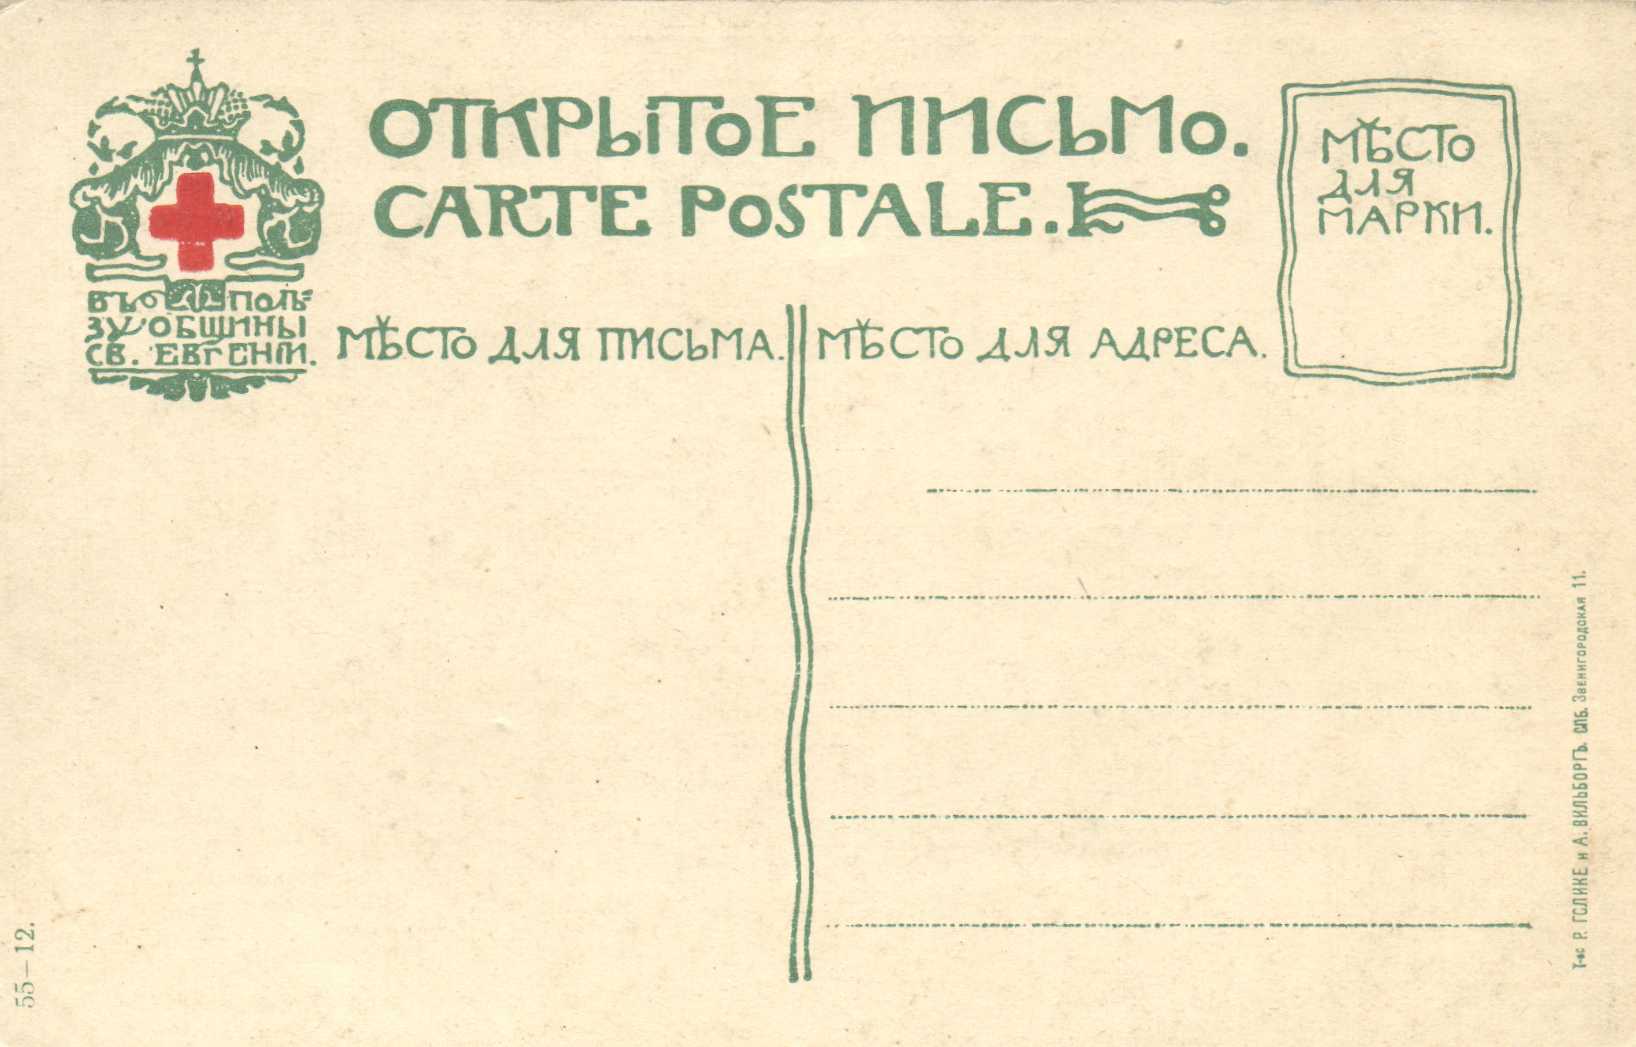 ОТКРЫТОЕ ПИСЬМО.
CARTE POSTALE.
МѢСТО
ДЛЯ
МАРКИ.
ВЪ ПОЛЬ=
ЗУ ОБЩИНЫ
СВ. ЕВГЕНІИ.
МѢСТО ДЛЯ ПИСЬМА.
МѢСТО ДЛЯ АДРЕСА.
Т-во Р. ГОЛИКЕ и А. ВИЛЬБОРГЪ. СПБ. Звенигородская 11.
55—12.